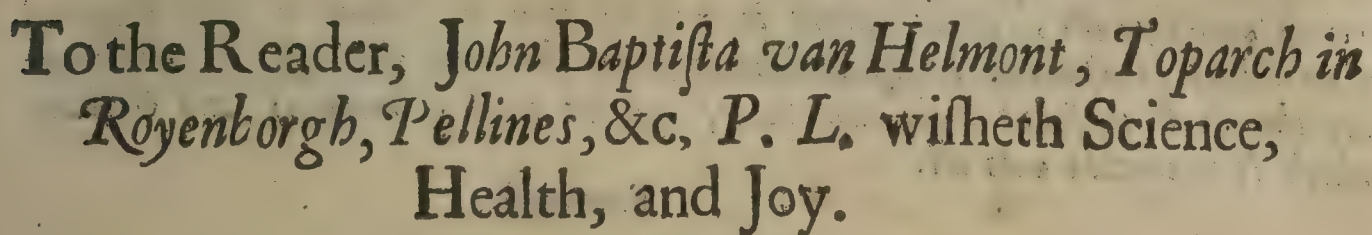 To the Reader, John Baptiſta van Helmont, Toparch in
Royenborgh, Pellines, &c, P. L. wiſheth Science,
Health, and Joy.